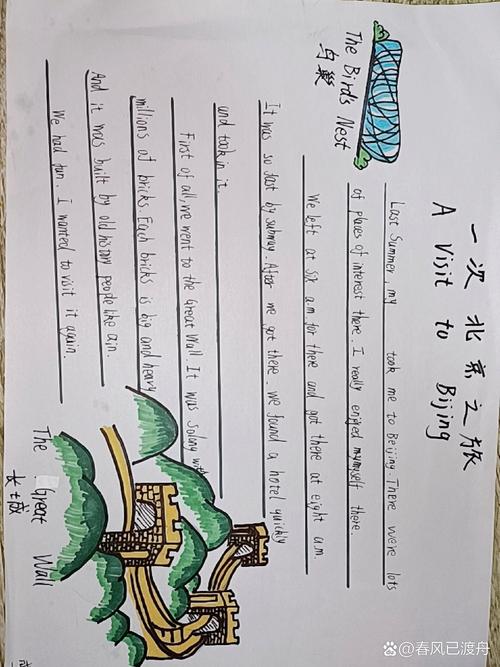 一次北京之旅
A Visit to Bijing
The Birds Nest
鸟巢
Last Summer, my took me to Beijing. There were lots
of places of interest there. I really enjoyed mymyself there.
We left at six a.m. for there and got there at eight a.m.
It was so fast by subway. After we got there. we found a hotel quickly
and took in it.
First of all, we went to the Great Wall. It was so long with
millions of bricks. Each bricks is big and heavy
And it was built by old history people like
We had fun. I wanted to visit it again.
The Great Wall
长城
春风已渡舟